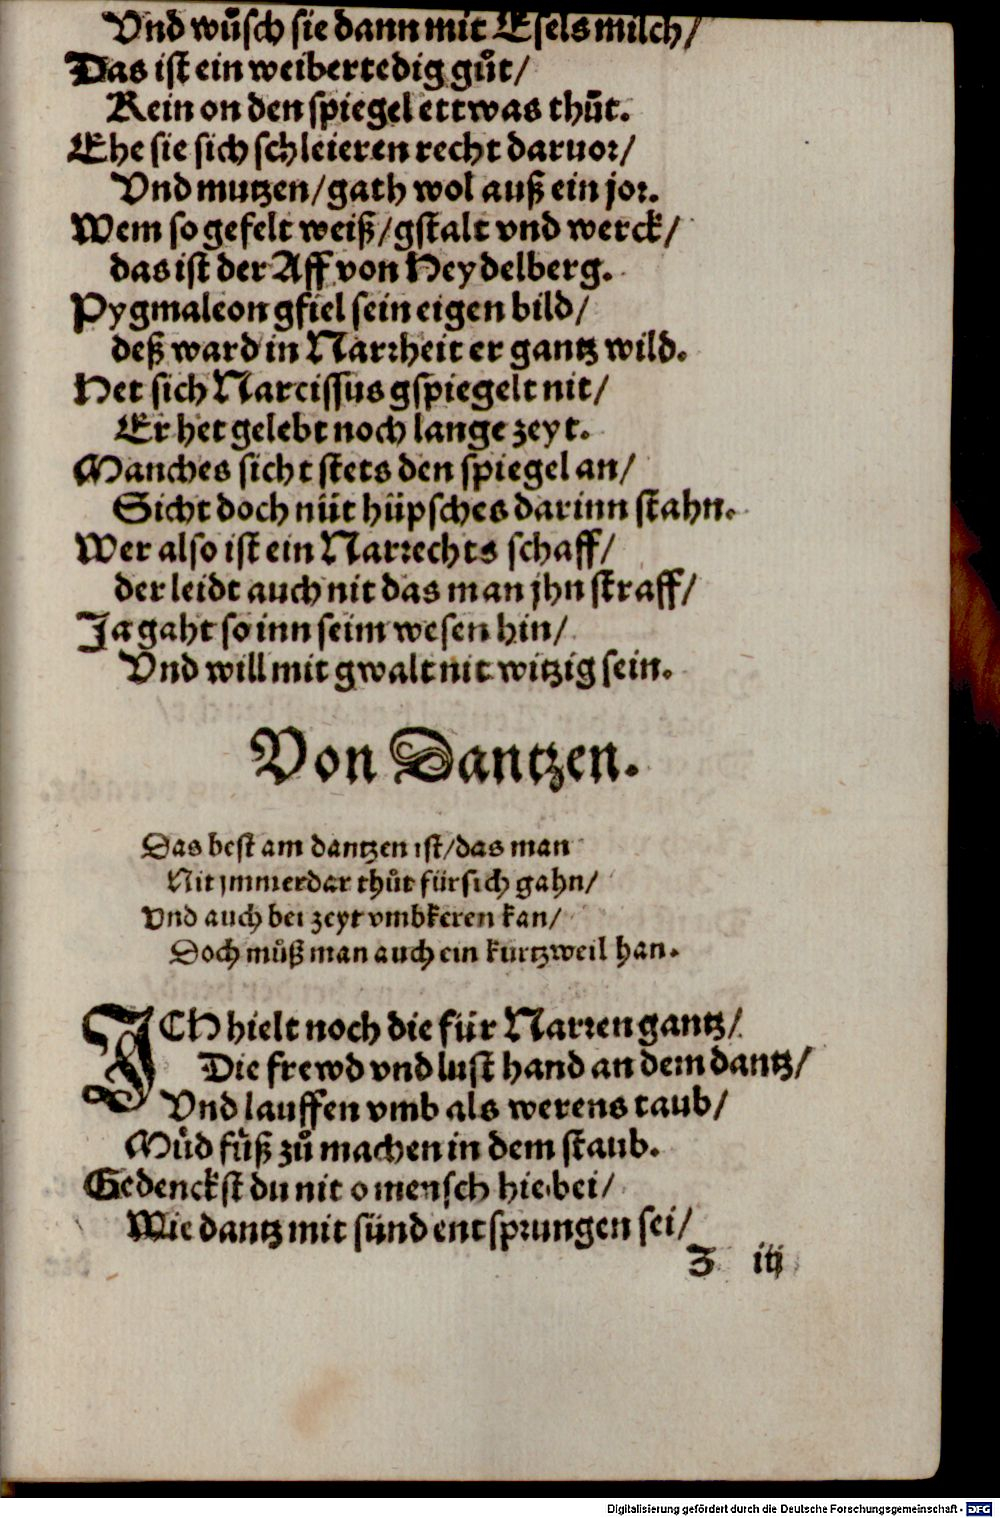 Vnd wuͤsch sie dann mit Esels milch/
Das ist ein weibertedig guͤt/
Kein on den spiegel ettwas thuͤt.
Ehe sie sich schleieren recht daruor/
Vnd mutzen/gath wol auß ein jor.
Wem so gefelt weiß/gstalt vnd werck/
das ist der Aff von Heydelberg.
Pygmaleon gfiel sein eigen bild/
deß ward in Narrheit er gantz wild.
Het sich Narcissus gspiegelt nit/
Er het gelebt noch lange zeyt.
Manches sicht stets den spiegel an/
Sicht doch nüt hüpsches darinn stahn.
Wer also ist ein Narrechts schaff/
der leidt auch nit das man jhn straff/
Ja gaht so inn seim wesen hin/
Vnd will mit gwalt nit witzig sein.
Von Dantzen.
Das best am dantzen ist/das man
Nit jmmerdar thuͦt fürsich gahn/
Vnd auch bei zeyt vmbkeren kan/
Doch muͦß man auch ein kurtzweil han.
ICH hielt noch die für Narren gantz/
Die frewd vnd lust hand an dem dantz/
Vnd lauffen vmb als werens taub/
Muͤd fuͤß zuͦ machen in dem staub.
Gedenckst du nit o mensch hie bei/
Wie dantz mit sünd entsprungen sei/
Z iij
Digitalisierung gefördert durch die Deutsche Forschungsgemeinschaft - DFG